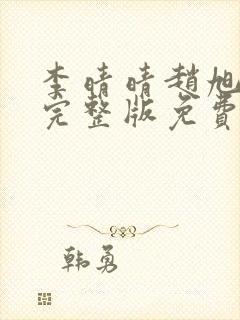 李晴晴趙旭
完整版免費
韩勇